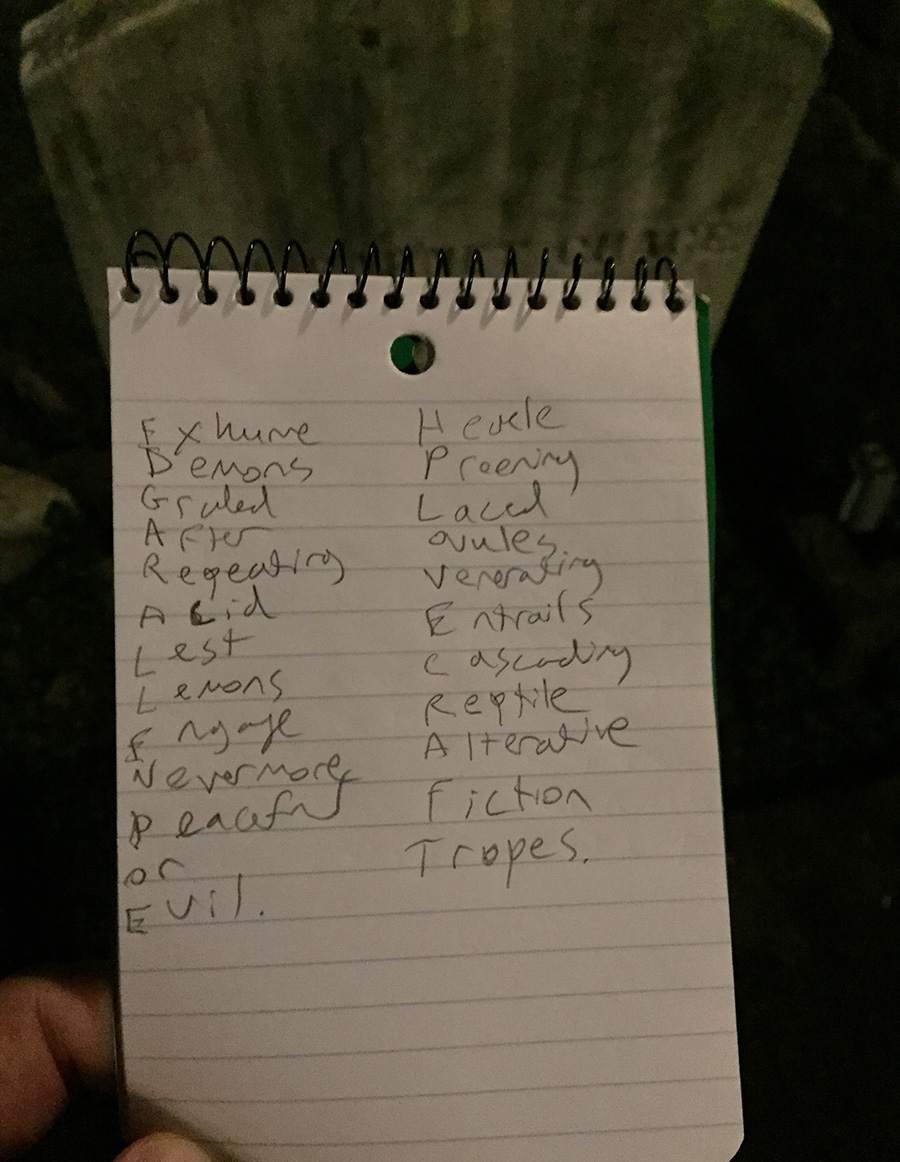 Exhume
Demons
After
Repeating
Acid
Lest
Lemons
Engage
Nevermore
Peaceful
or
Evil.
Preening
Laced
ovules
Venerating
Entrails
Cascading
Reptile
Alterative
Fiction
Tropes.